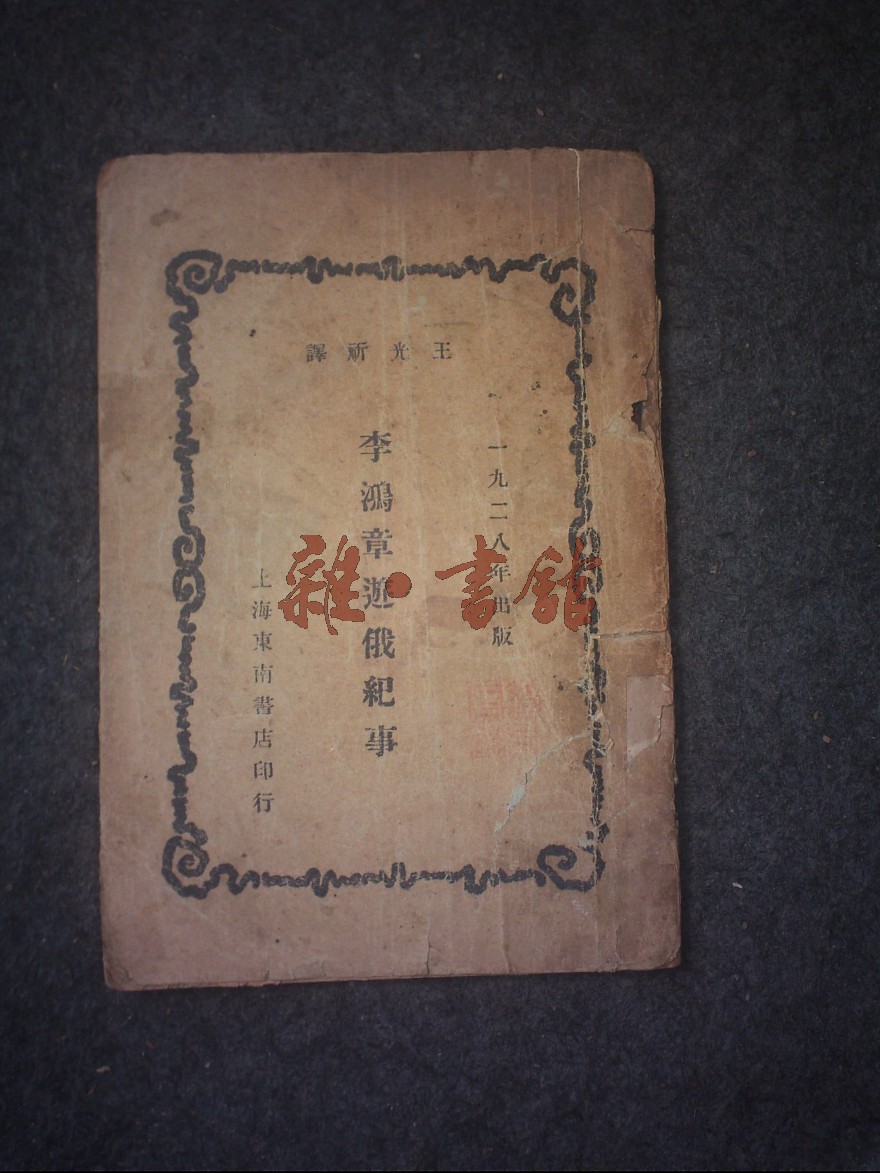 王光祈譯
一九二八年出版
李鴻章遊俄紀事
上海東南書店印行
雜·書館